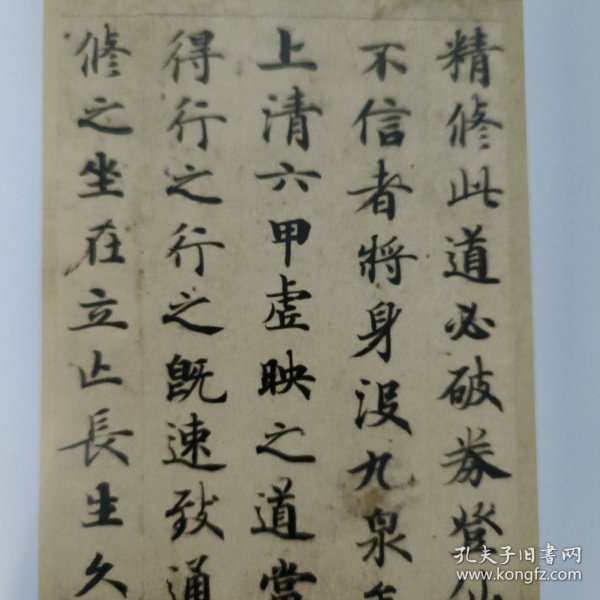 精修此道必破券登仙
不信者將身没九泉矣
上清六甲虚映之道當
得行之行之既速致通
修之坐在立亡長生久
孔夫子旧书网
www.kongfz.com